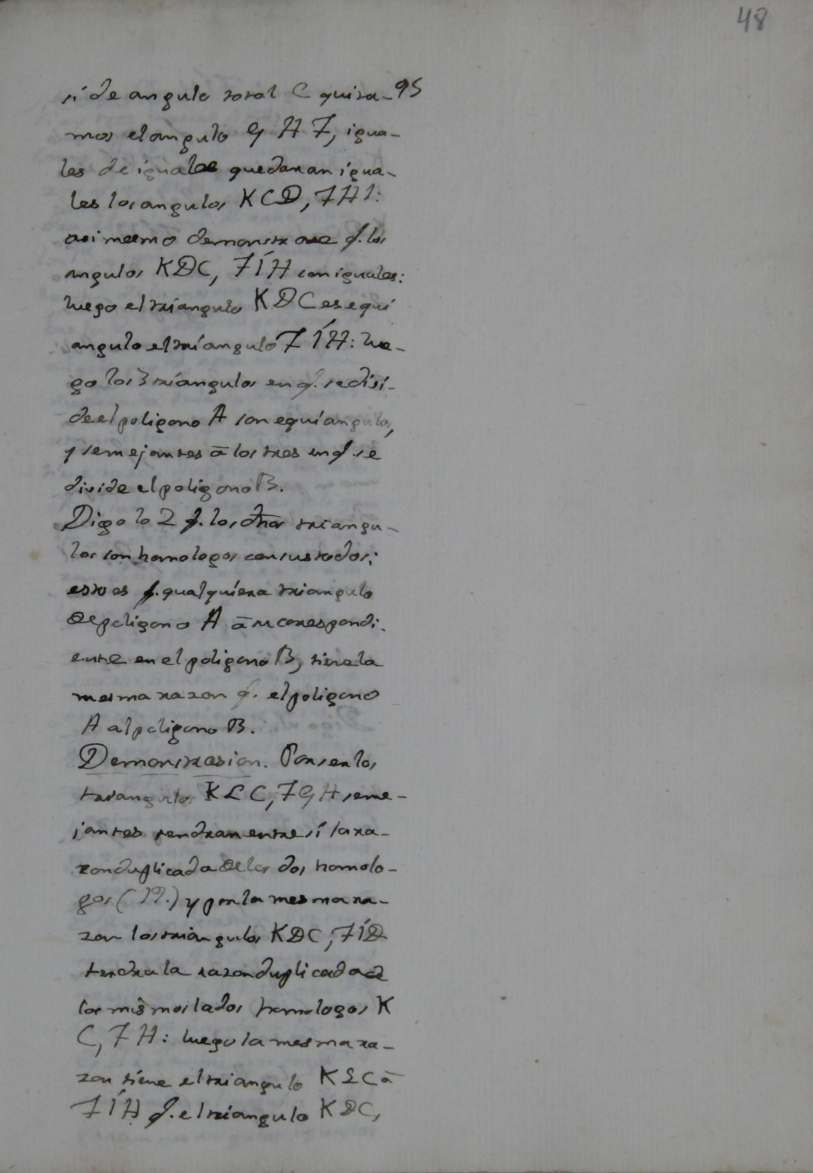 48
si de angulo total C quita- 95
mos el angulo G H F, igua-
les de iguales quedaran igua-
les los angulos KCD, FHI:
asi mesmo demonstrase q. los
angulos KDC, FÍH son iguales:
luego el triangulo KDC es equi
angulo el triangulo FÍH: lue-
go los 3 triangulos en q. se divi-
de el poligono A son equiangulos,
y semejantes ā los tres en q. se
divide el poligono B.
Digo lo 2 q. los dhos triangu-
los son homologos con sus todos;
esto es q. qualquiera triangulo
del poligono A ā su correspondi-
ente en el poligono B, tiene la
mesma razon q. el poligono
A al poligono B.
Demonstrasion. Por ser los
triangulos KLC, FGH seme-
jantes tendran entre sí la ra-
zon duplicada de los dos homolo-
gos (19.) y por la mesma ra-
zon los triangulos KDC, FÍD
tendra la razon duplicada de
los mismos lados homologos K
C, FH: luego la mesma ra-
zon tiene el triangulo KLC ā
FÍH q. el triangulo KDC,